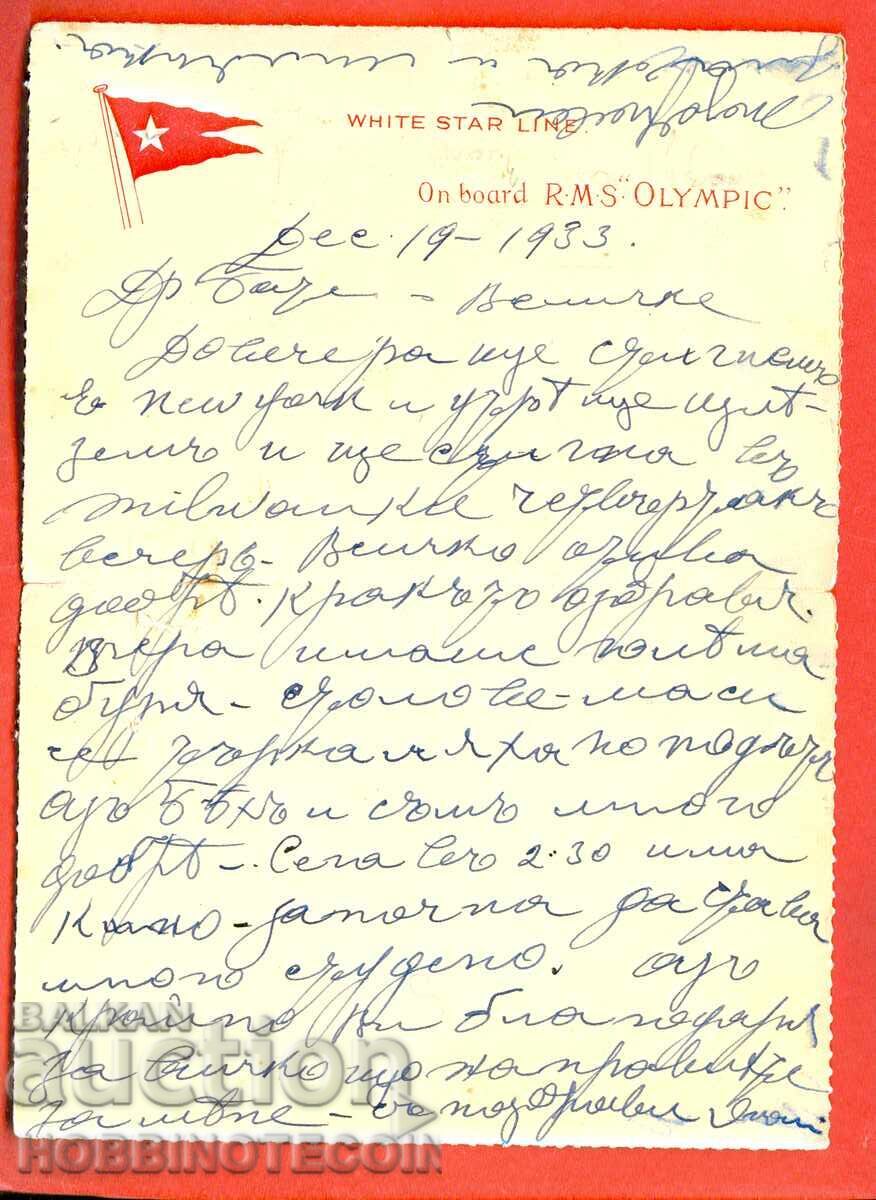 WHITE STAR LINE.
On board R.M.S. "OLYMPIC".
Дес. 19 – 1933.
Др Баче – Величке
Довечера ще стигнемъ
въ New York и утрѣ ще излѣ-
земъ и ще стигна въ
Milwaukee четвъртакъ
вечерь – Всичко отива
добрѣ. Кракътъ оздравя.
Вчера имаше голѣма
буря – столове – маси
се търкаляха по подътъ
азъ бѣхъ и съмъ много
добрѣ – Сега въ 2.30 има
кино – започна да става
много студено. азъ
крайно Ви благодаря
за всичко що направихте
за мене – съ поздрави
и
BALKAN
auction
HOBBINOTECOIN